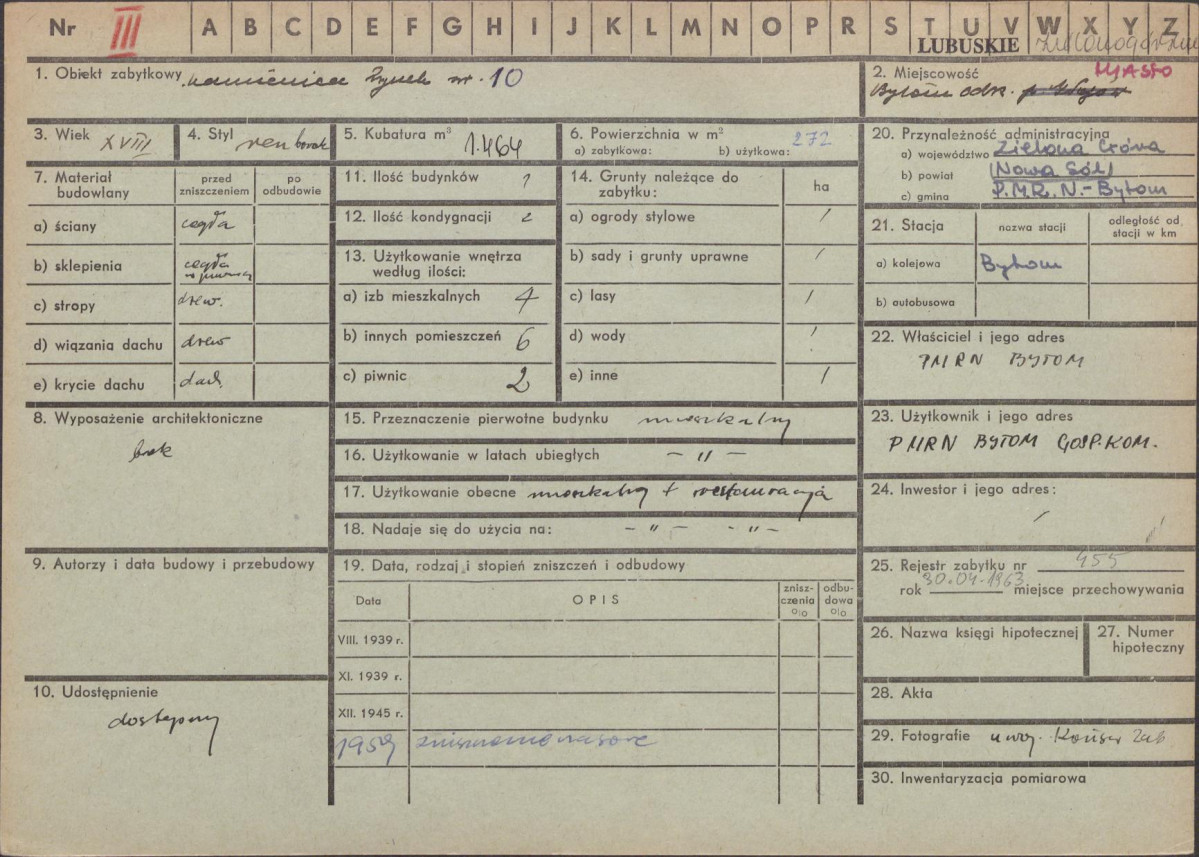 Nr III A B C D E F G H I J K L M N O P R S T U V W X Y Z
LUBUSKIE
1. Obiekt zabytkowy kamienica Rynek nr. 10
2. Miejscowość MIASTO
Bytom odrz.
3. Wiek XVIII
4. Styl ren barok
5. Kubatura m³ 1.464
6. Powierzchnia w m²
a) zabytkowa: b) użytkowa: 272
20. Przynależność administracyjna
a) województwo Zielona Góra
b) powiat (Nowa Sól)
c) gmina P.M.R.N.-Bytom
7. Materiał budowlany
przed zniszczeniem
po odbudowie
a) ściany cegła
b) sklepienia cegła w piwnicy
c) stropy drew.
d) wiązania dachu drew
e) krycie dachu dach.
11. Ilość budynków 1
12. Ilość kondygnacji 2
13. Użytkowanie wnętrza
według ilości:
a) izb mieszkalnych 4
b) innych pomieszczeń 6
c) piwnic 2
14. Grunty należące do
zabytku: ha
a) ogrody stylowe /
b) sady i grunty uprawne /
c) lasy /
d) wody /
e) inne /
21. Stacja
nazwa stacji
odległość od
stacji w km
a) kolejowa Bytom
b) autobusowa
22. Właściciel i jego adres
PMRN BYTOM
8. Wyposażenie architektoniczne
brak
15. Przeznaczenie pierwotne budynku mieszkalny
16. Użytkowanie w latach ubiegłych – " –
17. Użytkowanie obecne mieszkalny + restauracja
18. Nadaje się do użycia na: – " – – " –
23. Użytkownik i jego adres
PMRN BYTOM GOSP.KOM.
24. Inwestor i jego adres:
/ /
9. Autorzy i data budowy i przebudowy
19. Data, rodzaj i stopień zniszczeń i odbudowy
Data
OPIS
znisz-
czenia
o|o
odbu-
dowa
o|o
VIII. 1939 r.
XI. 1939 r.
XII. 1945 r.
1959
25. Rejestr zabytku nr 455
rok 30.04.1963 miejsce przechowywania
26. Nazwa księgi hipotecznej
27. Numer
hipoteczny
10. Udostępnienie
dostępny
28. Akta
29. Fotografie u woj. Konser Zab
30. Inwentaryzacja pomiarowa